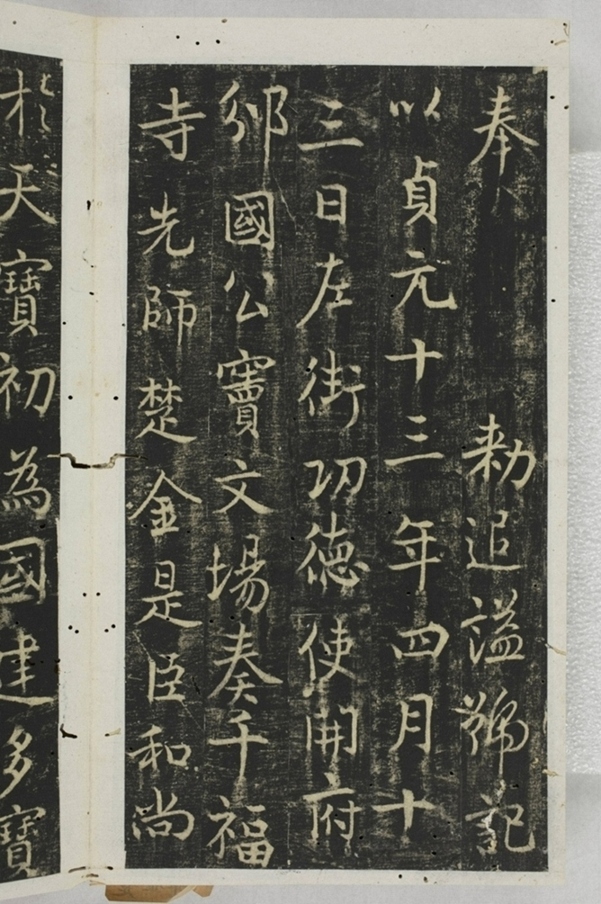 奉　敕追謚號記
以貞元十三年四月十
三日左街功德使開府
邠國公竇文場奏千福
寺先師楚金是臣和尚
於天寶初為國建多寶